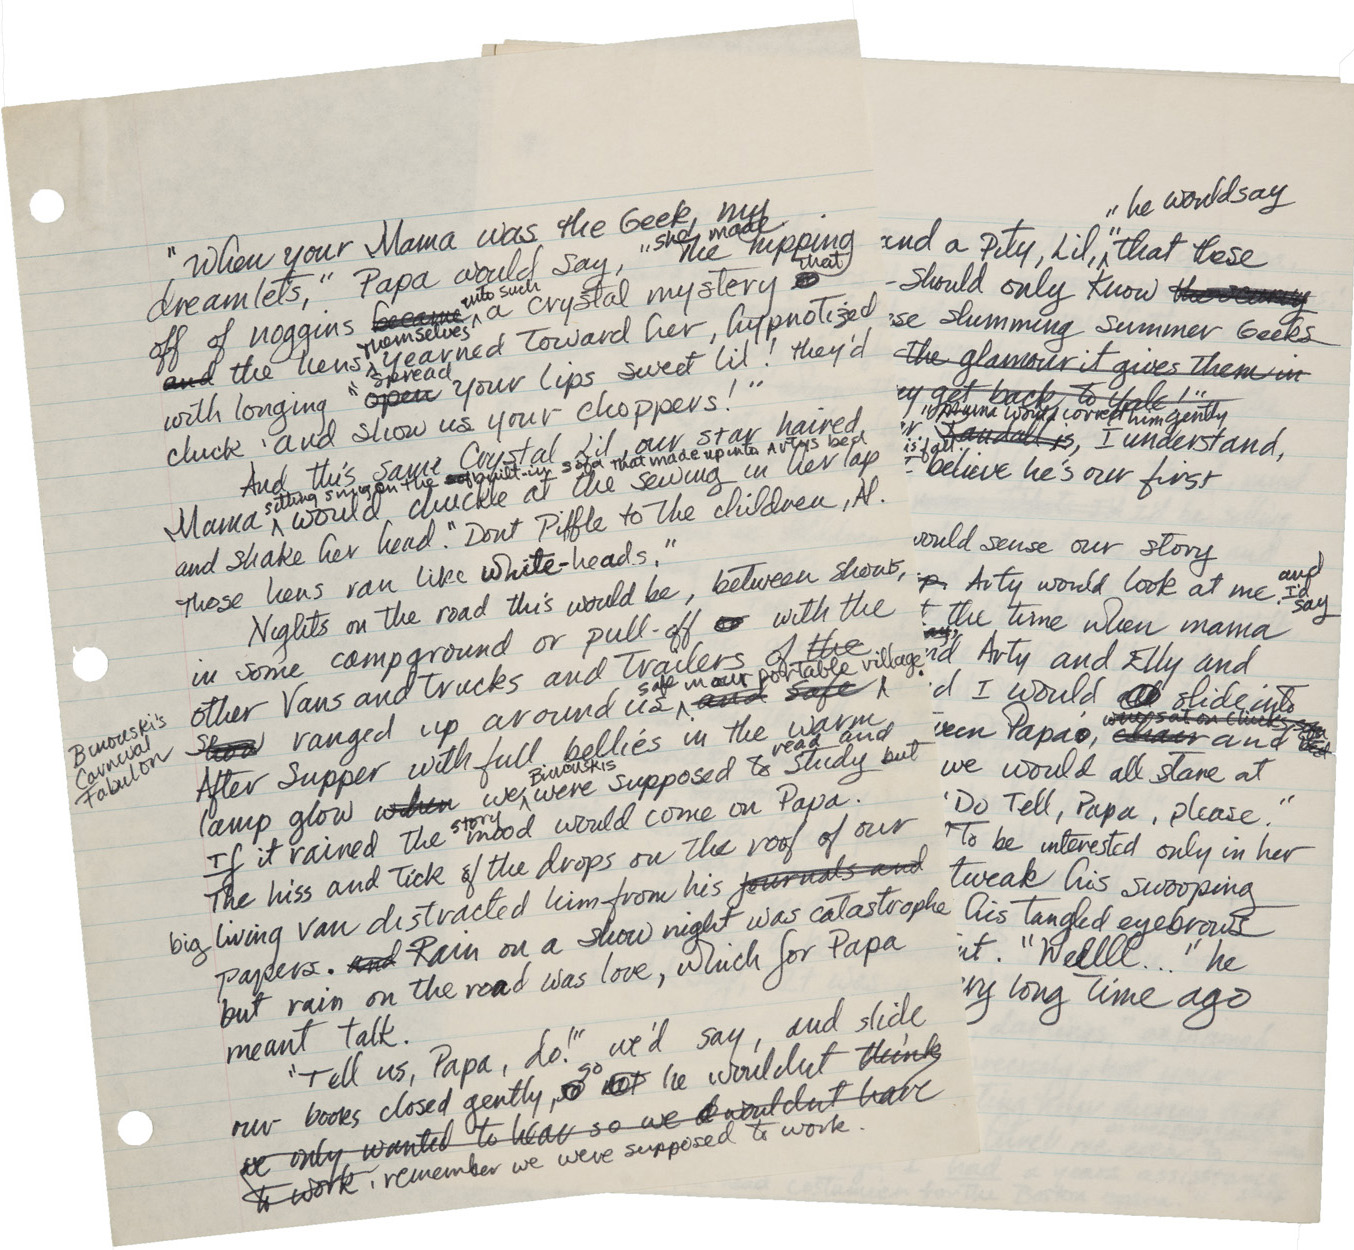 "When your Mama was the Geek, my
dreamlets," Papa would say, "she made the nipping
off of noggins became into such a crystal mystery that
and the hens themselves yearned Toward her, hypnotized
with longing "open spread your lips sweet Lil! they'd
cluck 'and show us your choppers!"
And this same Crystal Lil, our star haired
Mama sitting snug on the built-in sofa that made up into Artys bed would chuckle at the sewing in her lap
and shake her head. "Dont Piffle to the children, Al.
Those hens ran like white-heads."
Nights on the road this would be, between shows,
in some campground or pull-off with the
other Vans and Trucks and Trailers of the
Binewski's
Carnival
Fabulon
show ranged up around us and safe safe in our portable village.
After Supper with full bellies in the warm
lamp glow when we Binewskis were supposed to read and study but
If it rained the story mood would come on Papa.
The hiss and Tick of the drops on the roof of our
big living van distracted him from his journals and
papers. and Rain on a show night was catastrophe
but rain on the road was love, which for Papa
meant talk.
"Tell us, Papa, do!" we'd say, and slide
our books closed gently, so he wouldnt think
we only wanted to hear so we wouldnt have
to work. remember we were supposed to work.
"he would say
and a Pity, Lil, "that these
should only know
slumming summer Geeks
the glamour it gives them in
get back to Yale!"
"Mama would correct him gently
Randall is, I understand,
believe he's our first
would sense our story
Arty would look at me. and I'd say
the time when mama
Arty and Elly and
I would slide into
Papa's, chair and
we would all stare at
"Do Tell, Papa, please."
To be interested only in her
tweak his swooping
his tangled eyebrows
it. "Wellll..." he
long time ago